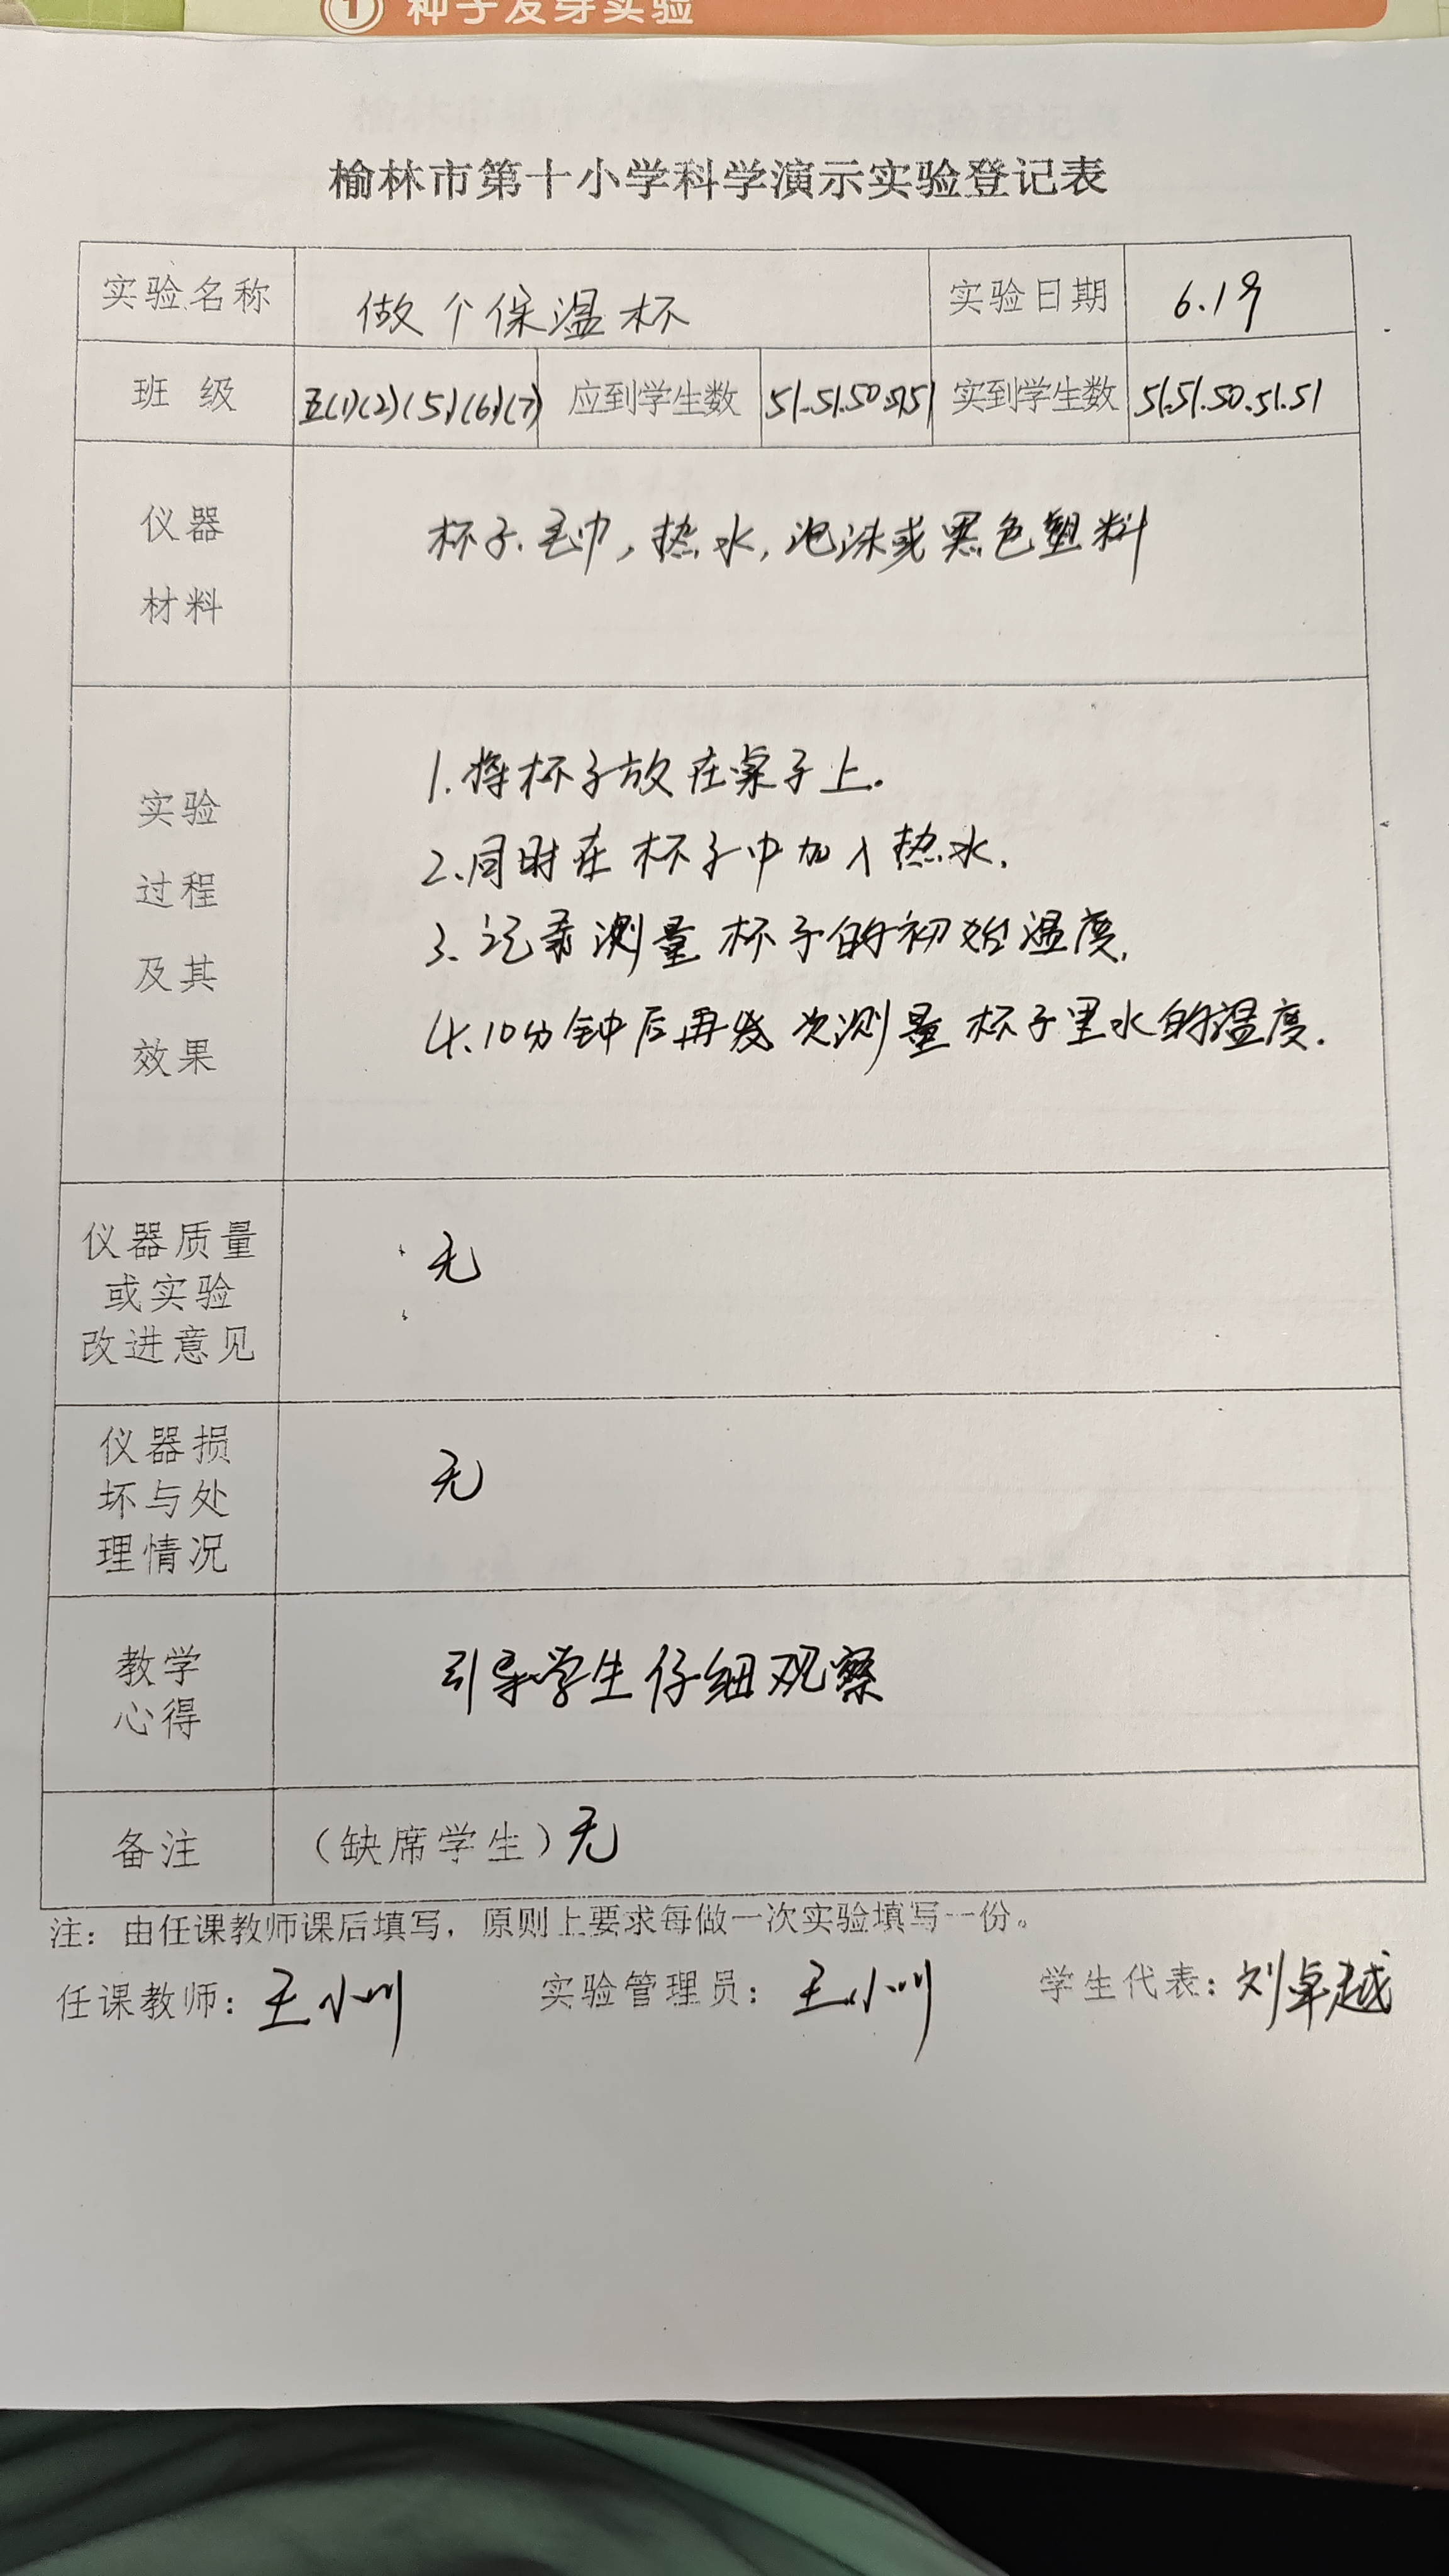 1 种子发芽实验
榆林市第十小学科学演示实验登记表
实验名称 做个保温杯 实验日期 6.19
班 级 五(1)(2)(5)(6)(7) 应到学生数 51.51.50.51.51 实到学生数 51.51.50.51.51
仪器
材料
杯子、毛巾,热水,泡沫或黑色塑料
实验
过程
及其
效果
1.将杯子放在桌子上.
2.同时在杯子中加入热水.
3.记录测量杯子的初始温度.
4.10分钟后再次测量杯子里水的温度.
仪器质量
或实验
改进意见
无
仪器损
坏与处
理情况
无
教学
心得
引导学生仔细观察
备注 (缺席学生)无
注:由任课教师课后填写,原则上要求每做一次实验填写一份。
任课教师:王小川 实验管理员:王小川 学生代表:刘卓越